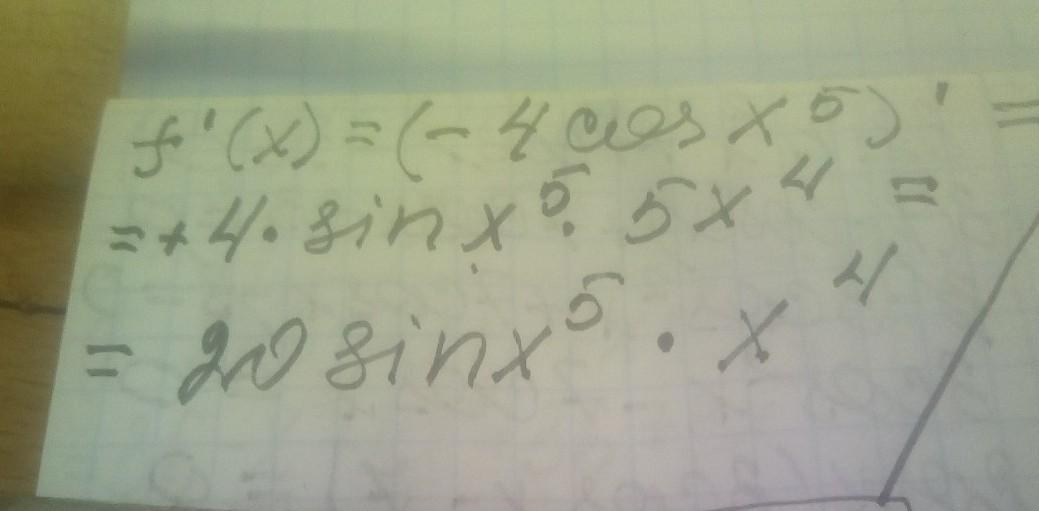 f'(x) = (- 4 cos x⁵)' =
= + 4 · sin x⁵ · 5x⁴ =
= 20 sin x⁵ · x⁴